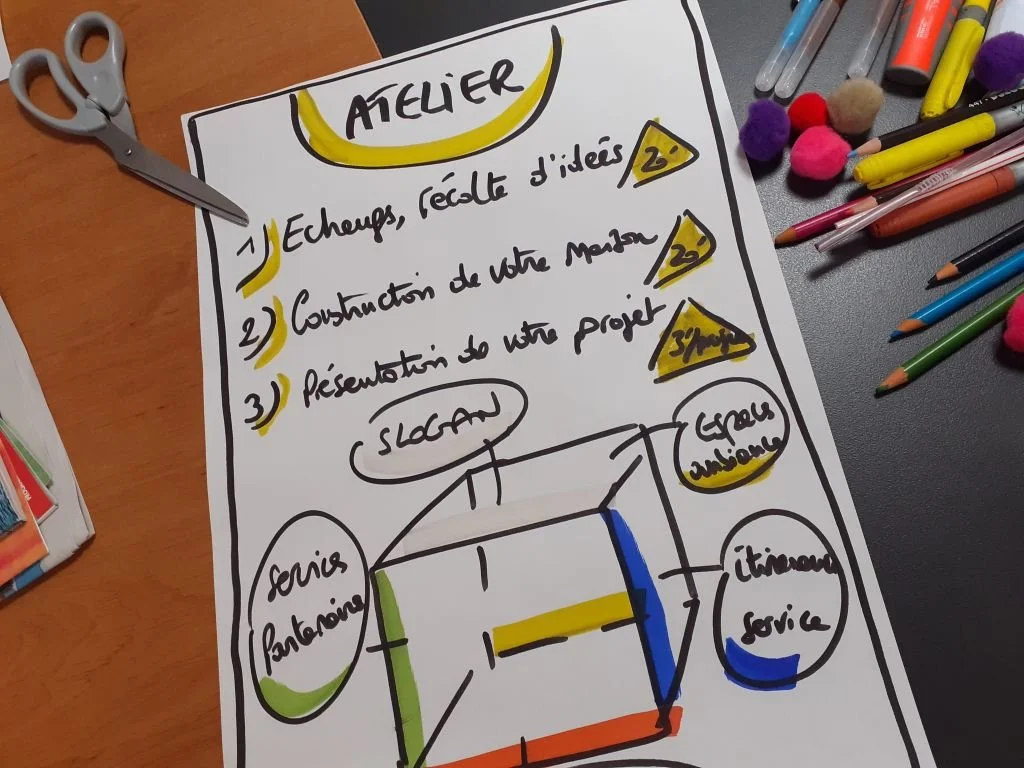 ATELIER
1) Echangs, récolte d'ideés 20'
2) Construction de votre maison 20'
3) Présentation de votre projet 3'/projet
SLOGAN
Espaces
ambiance
Service
Partenaire
itinérance
Service